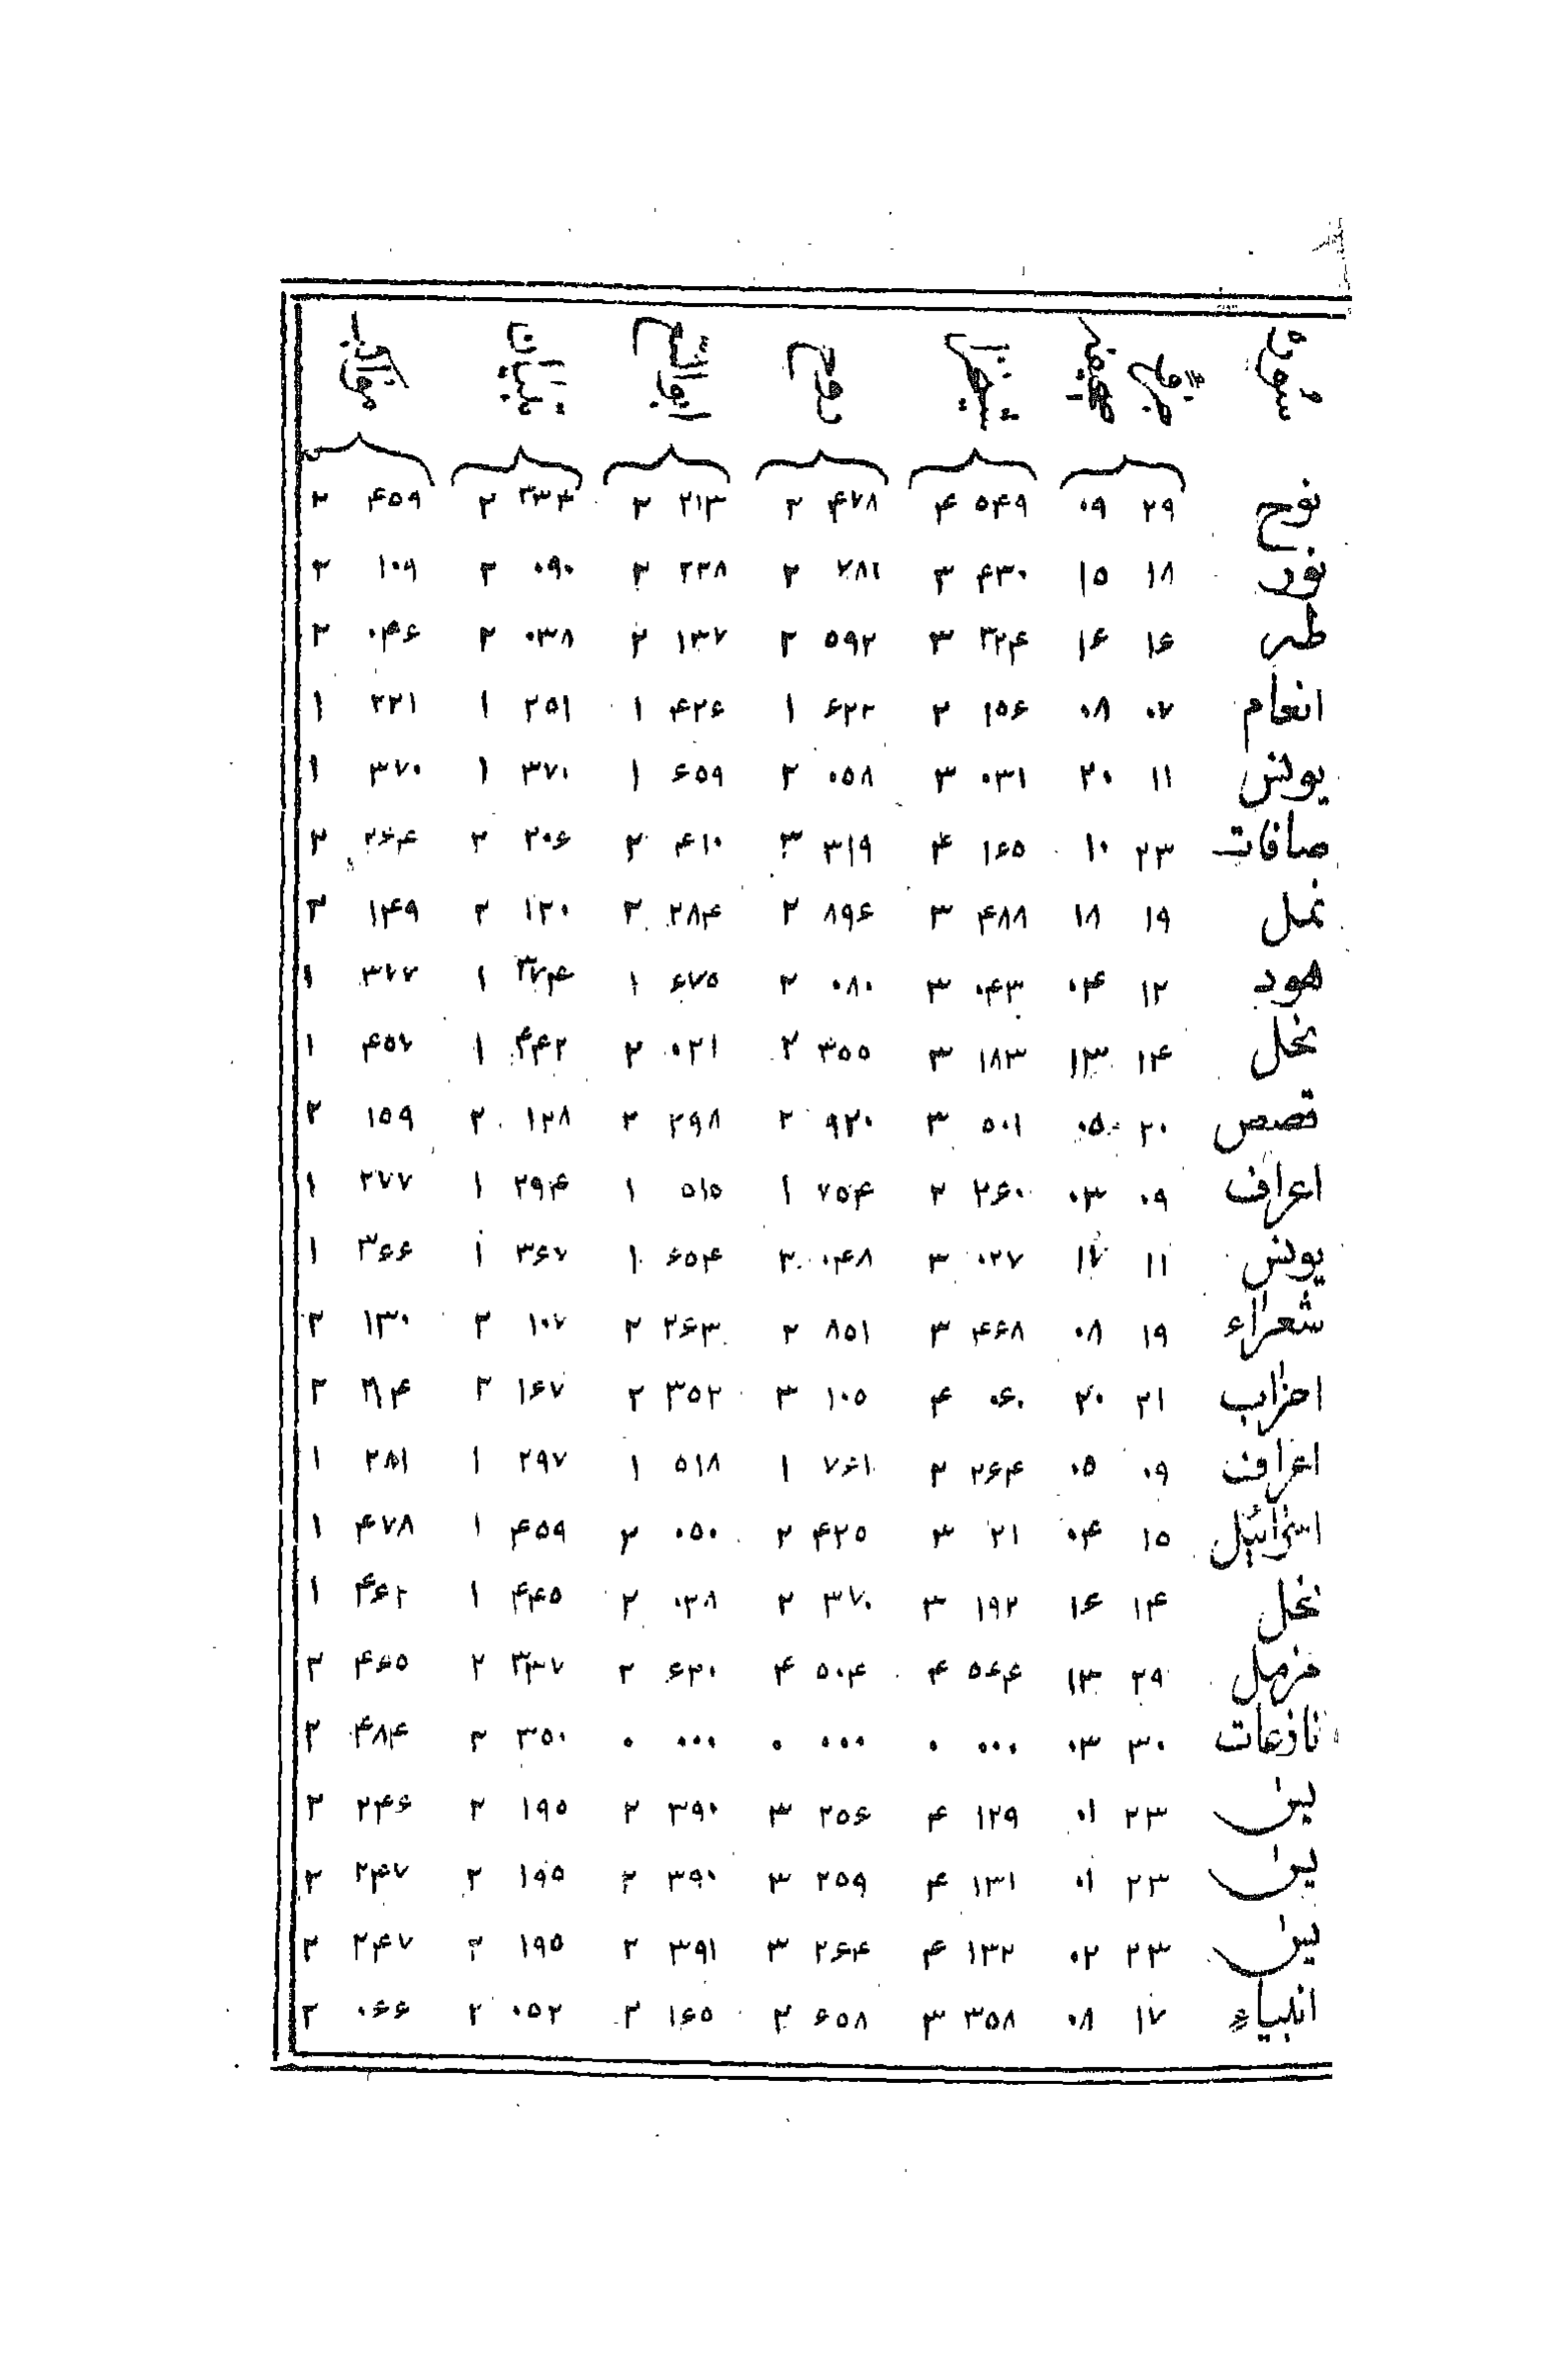 سوره جزو صفحه تبصیر روح ابوالفتوح تبیان مواهب
نوح ۲۹ ۰۹ ۵۴۹ ۴ ۴۷۸ ۲ ۲۱۳ ۲ ۳۳۴ ۲ ۴۵۹ ۲
نور ۱۸ ۱۵ ۴۳۰ ۳ ۷۸۶ ۲ ۲۳۸ ۲ ۰۹۰ ۲ ۱۰۹ ۲
طه ۱۶ ۱۶ ۳۲۴ ۳ ۵۹۲ ۲ ۱۳۷ ۲ ۰۳۸ ۲ ۰۴۶ ۲
انعام ۰۷ ۰۸ ۱۵۶ ۲ ۶۲۲ ۱ ۴۲۶ ۱ ۲۵۱ ۱ ۲۲۱ ۱
یونس ۱۱ ۲۰ ۰۳۱ ۳ ۰۵۸ ۲ ۶۵۹ ۱ ۳۷۰ ۱ ۳۷۰ ۱
صافات ۲۳ ۱۰ ۱۶۵ ۴ ۳۱۹ ۳ ۴۱۰ ۲ ۲۰۶ ۲ ۲۶۴ ۲
نمل ۱۹ ۱۸ ۴۸۸ ۳ ۸۹۶ ۲ ۲۸۴ ۲ ۱۲۰ ۲ ۱۴۹ ۲
هود ۱۲ ۰۴ ۰۴۳ ۳ ۰۸۰ ۲ ۶۷۵ ۱ ۳۷۴ ۱ ۳۷۷ ۱
نحل ۱۴ ۱۳ ۱۸۳ ۳ ۳۵۵ ۲ ۰۲۱ ۲ ۴۴۲ ۱ ۴۵۷ ۱
قصص ۲۰ ۰۵ ۵۰۱ ۳ ۹۲۰ ۲ ۲۹۸ ۲ ۱۲۸ ۲ ۱۵۹ ۲
اعراف ۰۹ ۰۳ ۲۶۰ ۲ ۷۵۴ ۱ ۵۱۵ ۱ ۲۹۴ ۱ ۲۷۷ ۱
یونس ۱۱ ۱۷ ۰۲۷ ۳ ۰۴۸ ۲ ۶۵۴ ۱ ۳۶۷ ۱ ۳۶۶ ۱
شعراء ۱۹ ۰۸ ۴۶۸ ۳ ۸۵۱ ۲ ۲۶۳ ۲ ۱۰۷ ۲ ۱۳۰ ۲
احزاب ۲۱ ۲۰ ۰۶۰ ۴ ۱۰۵ ۳ ۳۵۲ ۲ ۱۶۷ ۲ ۲۱۴ ۲
اعراف ۰۹ ۰۵ ۲۶۴ ۲ ۷۶۱ ۱ ۵۱۸ ۱ ۲۹۷ ۱ ۲۸۱ ۱
اسرائیل ۱۵ ۰۴ ۲۱ ۳ ۴۲۵ ۲ ۰۵۰ ۲ ۴۵۹ ۱ ۴۷۸ ۱
نحل ۱۴ ۱۶ ۱۹۲ ۳ ۳۷۰ ۲ ۰۲۸ ۲ ۴۴۵ ۱ ۴۶۲ ۱
مزمل ۲۹ ۱۳ ۵۶۴ ۴ ۵۰۴ ۴ ۶۲۰ ۲ ۳۳۷ ۲ ۴۶۵ ۲
نازعات ۳۰ ۰۳ ۰۰۰ ۰ ۰۰۰ ۰ ۰۰۰ ۰ ۳۵۰ ۲ ۴۸۴ ۲
یس ۲۳ ۰۱ ۱۲۹ ۴ ۲۵۶ ۳ ۳۹۰ ۲ ۱۹۵ ۲ ۲۴۶ ۲
یس ۲۳ ۰۱ ۱۳۱ ۴ ۲۵۹ ۳ ۳۹۰ ۲ ۱۹۵ ۲ ۲۴۷ ۲
یس ۲۳ ۰۲ ۱۳۲ ۴ ۲۶۴ ۳ ۳۹۱ ۲ ۱۹۵ ۲ ۲۴۷ ۲
انبیاء ۱۷ ۰۸ ۳۵۸ ۳ ۶۵۸ ۲ ۱۶۵ ۲ ۰۵۲ ۲ ۰۶۶ ۲